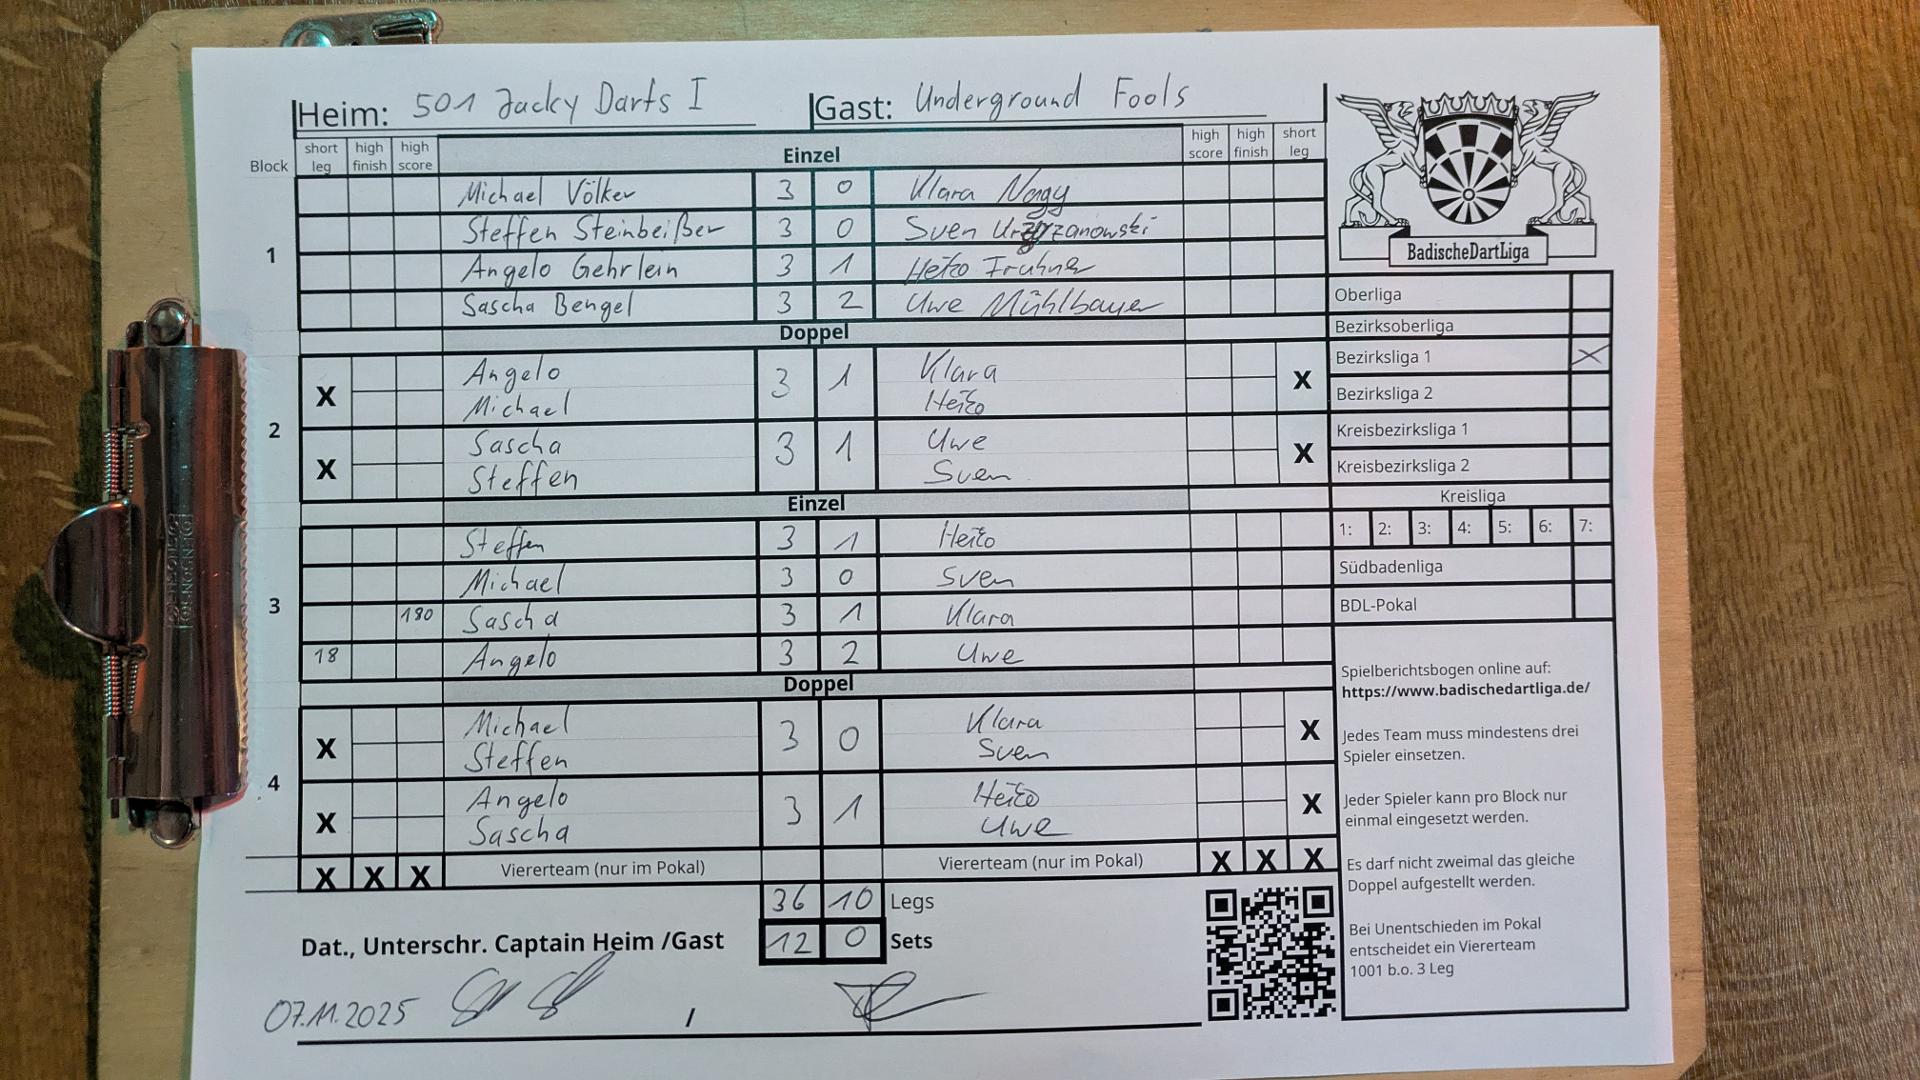 Heim: 501 Jacky Darts I Gast: Underground Fools
Block short leg high finish high score Einzel high score high finish short leg
1
Michael Völker 3 0 Klara Nagy
Steffen Steinbeißer 3 0 Sven
Angelo Gehrlein 3 1 Heiko Fruhner
Sascha Bengel 3 2 Uwe Mühlbauer
Doppel
2
X Angelo 3 1 Klara X
Michael Heiko
X Sascha 3 1 Uwe X
Steffen Sven
Einzel
3
Steffen 3 1 Heiko
Michael 3 0 Sven
180 Sascha 3 1 Klara
18 Angelo 3 2 Uwe
Doppel
4
X Michael 3 0 Klara X
Steffen Sven
X Angelo 3 1 Heiko X
Sascha Uwe
X X X Viererteam (nur im Pokal) Viererteam (nur im Pokal) X X X
36 10 Legs
Dat., Unterschr. Captain Heim /Gast 12 0 Sets
07.11.2025 /
BadischeDartLiga
Oberliga
Bezirksoberliga
Bezirksliga 1 X
Bezirksliga 2
Kreisbezirksliga 1
Kreisbezirksliga 2
Kreisliga
1: 2: 3: 4: 5: 6: 7:
Südbadenliga
BDL-Pokal
Spielberichtsbogen online auf:
https://www.badischedartliga.de/
Jedes Team muss mindestens drei
Spieler einsetzen.
Jeder Spieler kann pro Block nur
einmal eingesetzt werden.
Es darf nicht zweimal das gleiche
Doppel aufgestellt werden.
Bei Unentschieden im Pokal
entscheidet ein Viererteam
1001 b.o. 3 Leg